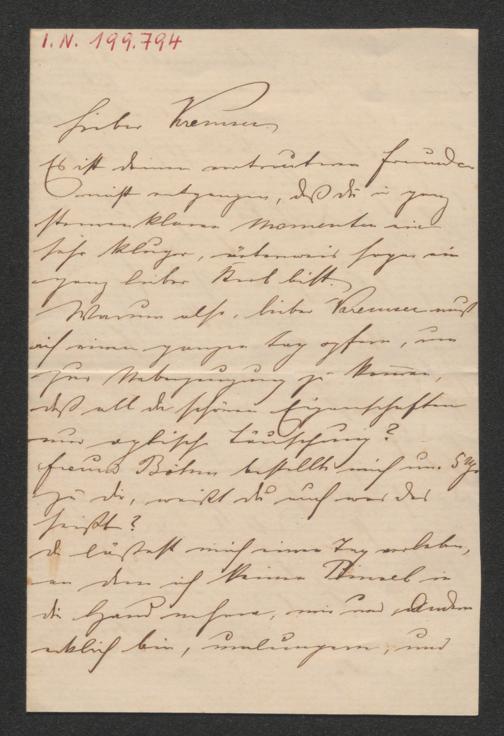 I.N. 199.794
Lieber Kremser,
Es ist deinen vertrauteren Freunden
nicht entgangen, daß du in ganz
sternenklaren Momenten ein
sehr kluger, mitunter sogar ein
ganz lieber Kerl bist.
Warum also, lieber Kremser muß
ich einen ganzen Tag opfern, um
zur Überzeugung zu kommen,
daß all die schönen Eigenschaften
nur optisch Täuschung?
Freund Böhm bestellte mich um 5 Uhr
zu dir, weißt du auch was das
heißt?
du läßest mich einen Tag verleben,
an dem ich keinen Pinsel in
die Hand nehme, mir und Andern
bin, umlungern, und